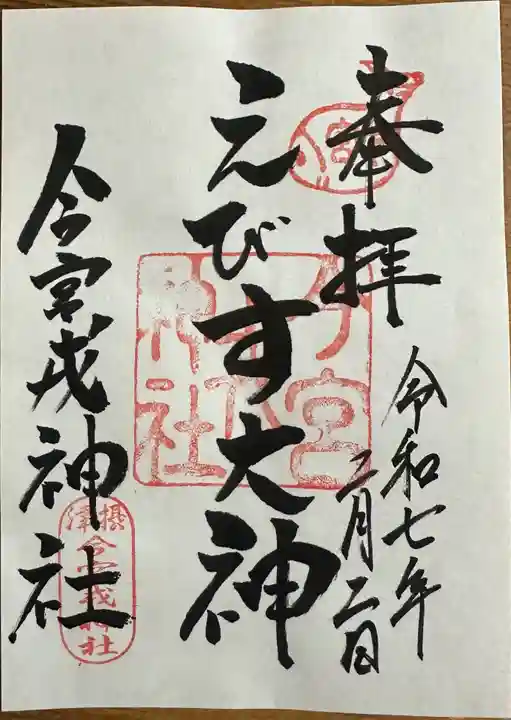 奉拝
令和七年
二月二日
えびす大神
今宮戎神社
宮
今宮戎神社
摂津
今宮戎神社